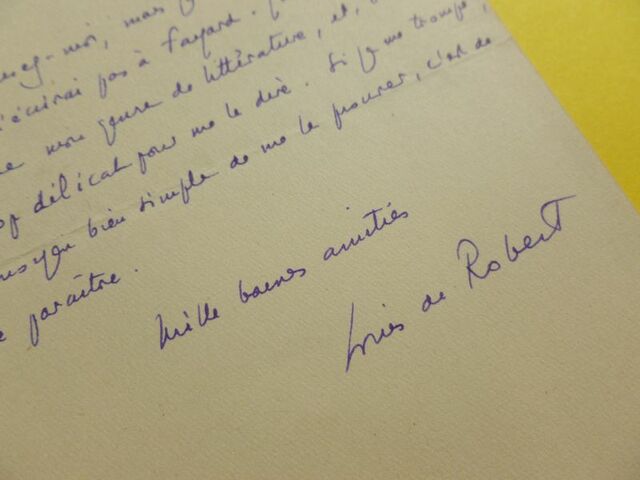 -moi, mais
'écrirai pas à Fayard.
mon genre de littérature, et,
délicat pour me le dire. Si je me trompe,
moyen bien simple de me le prouver, c'est de
paraître.
Mille bonnes amitiés
Louis de Robert